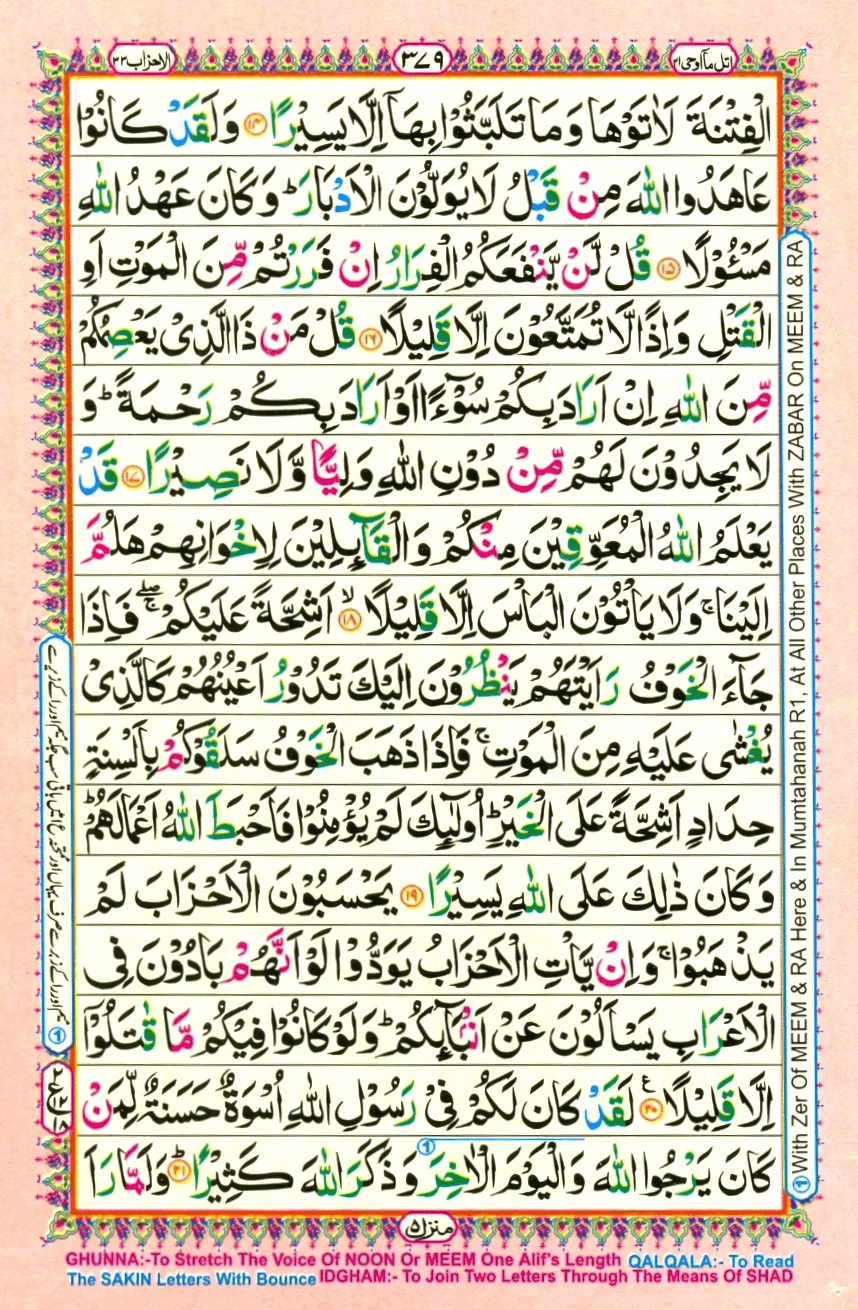 اتل مآ اوحی ۲۱
۳۷۹
الاحزاب ۳۳
الْفِتْنَةَ لَاٰتَوْهَا وَمَا تَلَبَّثُوْا بِهَاۤ اِلَّا يَسِيْرًا ۝۱۴ وَلَقَدْ كَانُوْا
عَاهَدُوا اللّٰهَ مِنْ قَبْلُ لَا يُوَلُّوْنَ الْاَدْبَارَ ؕ وَكَانَ عَهْدُ اللّٰهِ
مَسْـُٔوْلًا ۝۱۵ قُلْ لَّنْ يَّنْفَعَكُمُ الْفِرَارُ اِنْ فَرَرْتُمْ مِّنَ الْمَوْتِ اَوِ
الْقَتْلِ وَاِذًا لَّا تُمَتَّعُوْنَ اِلَّا قَلِيْلًا ۝۱۶ قُلْ مَنْ ذَا الَّذِیْ يَعْصِمُكُمْ
مِّنَ اللّٰهِ اِنْ اَرَادَ بِكُمْ سُوْٓءًا اَوْ اَرَادَ بِكُمْ رَحْمَةً ؕ وَ
لَا يَجِدُوْنَ لَهُمْ مِّنْ دُوْنِ اللّٰهِ وَلِيًّا وَّلَا نَصِيْرًا ۝۱۷ قَدْ
يَعْلَمُ اللّٰهُ الْمُعَوِّقِيْنَ مِنْكُمْ وَالْقَآىِٕلِيْنَ لِاِخْوَانِهِمْ هَلُمَّ
اِلَيْنَا ۚ وَلَا يَاْتُوْنَ الْبَاْسَ اِلَّا قَلِيْلًا ۙ۝۱۸ اَشِحَّةً عَلَيْكُمْ ۖۚ فَاِذَا
جَآءَ الْخَوْفُ رَاَيْتَهُمْ يَنْظُرُوْنَ اِلَيْكَ تَدُوْرُ اَعْيُنُهُمْ كَالَّذِیْ
يُغْشٰی عَلَيْهِ مِنَ الْمَوْتِ ۚ فَاِذَا ذَهَبَ الْخَوْفُ سَلَقُوْكُمْ بِاَلْسِنَةٍ
حِدَادٍ اَشِحَّةً عَلَی الْخَيْرِ ؕ اُولٰٓىِٕكَ لَمْ يُؤْمِنُوْا فَاَحْبَطَ اللّٰهُ اَعْمَالَهُمْ ؕ
وَكَانَ ذٰلِكَ عَلَی اللّٰهِ يَسِيْرًا ۝۱۹ يَحْسَبُوْنَ الْاَحْزَابَ لَمْ
يَذْهَبُوْا ۚ وَاِنْ يَّاْتِ الْاَحْزَابُ يَوَدُّوْا لَوْ اَنَّهُمْ بَادُوْنَ فِی
الْاَعْرَابِ يَسْاَلُوْنَ عَنْ اَنْۢبَآىِٕكُمْ ؕ وَلَوْ كَانُوْا فِيْكُمْ مَّا قٰتَلُوْۤا
اِلَّا قَلِيْلًا ۝۲۰ ع لَقَدْ كَانَ لَكُمْ فِیْ رَسُوْلِ اللّٰهِ اُسْوَةٌ حَسَنَةٌ لِّمَنْ
كَانَ يَرْجُوا اللّٰهَ وَالْيَوْمَ الْاٰخِرَ وَذَكَرَ اللّٰهَ كَثِيْرًا ؕ۝۲۱ وَلَمَّا رَاَ
①
① With Zer Of MEEM & RA Here & In Mumtahanah R1, At All Other Places With ZABAR On MEEM & RA
منزل ۵
GHUNNA:-To Stretch The Voice Of NOON Or MEEM One Alif's Length QALQALA:- To Read
The SAKIN Letters With Bounce IDGHAM:- To Join Two Letters Through The Means Of SHAD